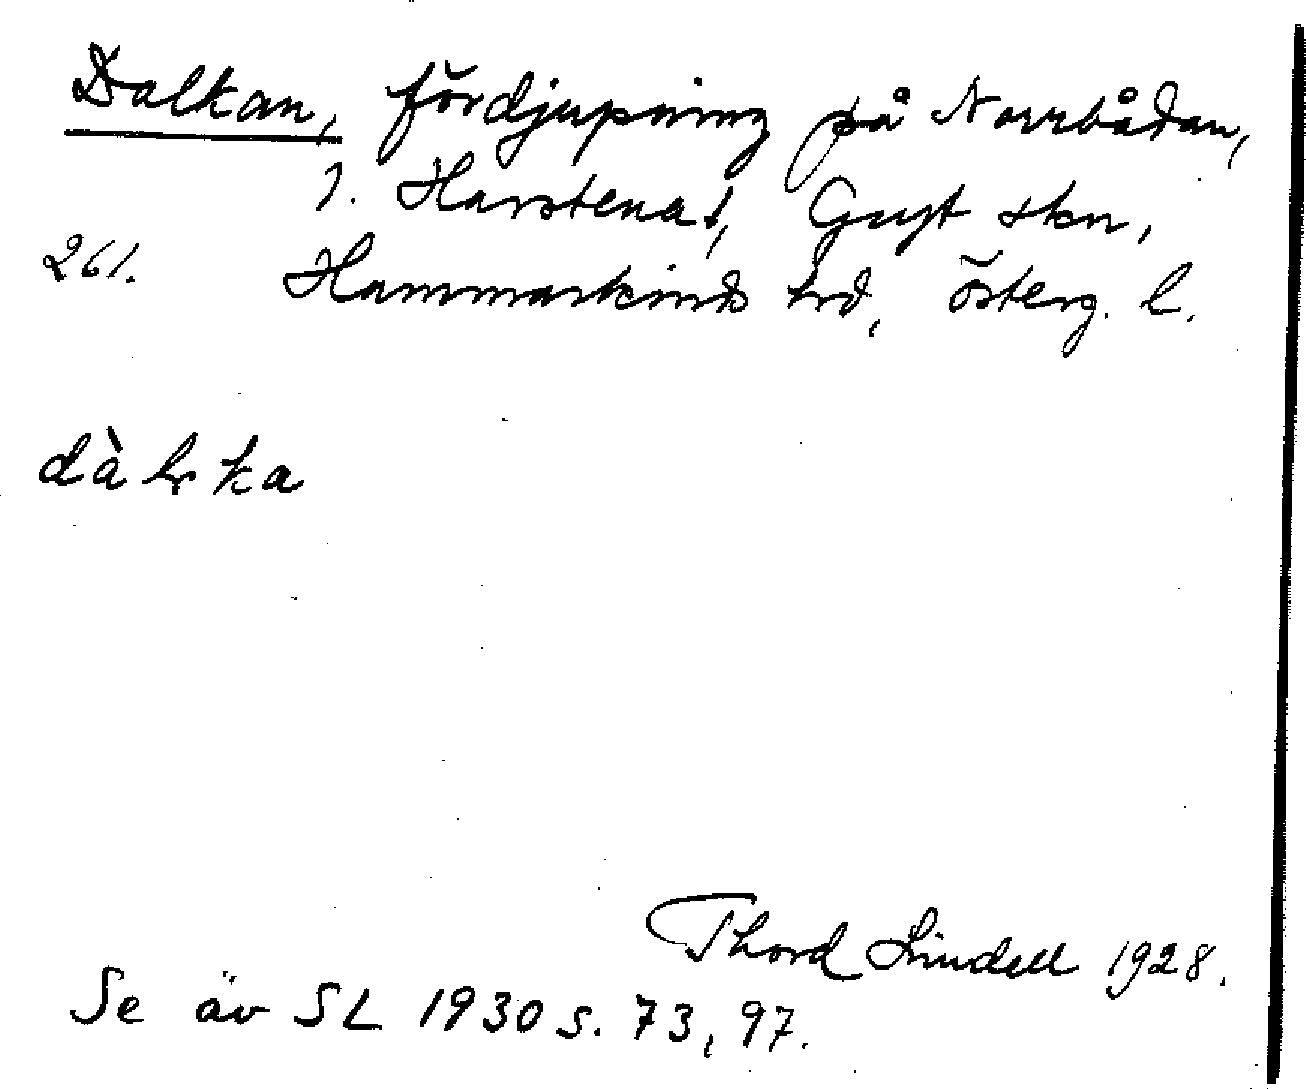 Dalkan, fördjupning på Norrbådan,
1. Harstena, Gryt skn,
261. Hammarkinds hrd, Österg. l.
dàlka
Thord Lindell 1928.
Se äv SL 1930 s. 73, 97.